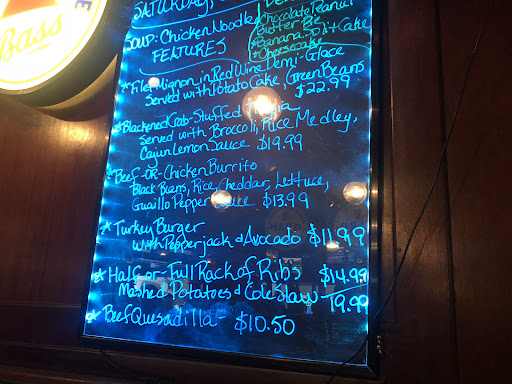 Bass
SATURDAY,
SOUP: Chicken Noodle
FEATURES
Chocolate Peanut
Butter Pie
*Banana Split Cake
*Cheesecake
*Filet Mignon in Red Wine Demi-Glace
Served with Potato Cake, Green Beans
$22.99
*Blackened Crab-Stuffed
Served with Broccoli, Rice Medley,
Cajun Lemon Sauce $19.99
*Beef-or-Chicken Burrito
Black Beans, Rice, Cheddar, Lettuce,
Guaillo Pepper Sauce $13.99
*Turkey Burger
with Pepperjack & Avocado $11.99
*Half-or-Full Rack of Ribs $14.99
Mashed Potatoes & Cole Slaw 19.99
*Beef Quesadilla - $10.50